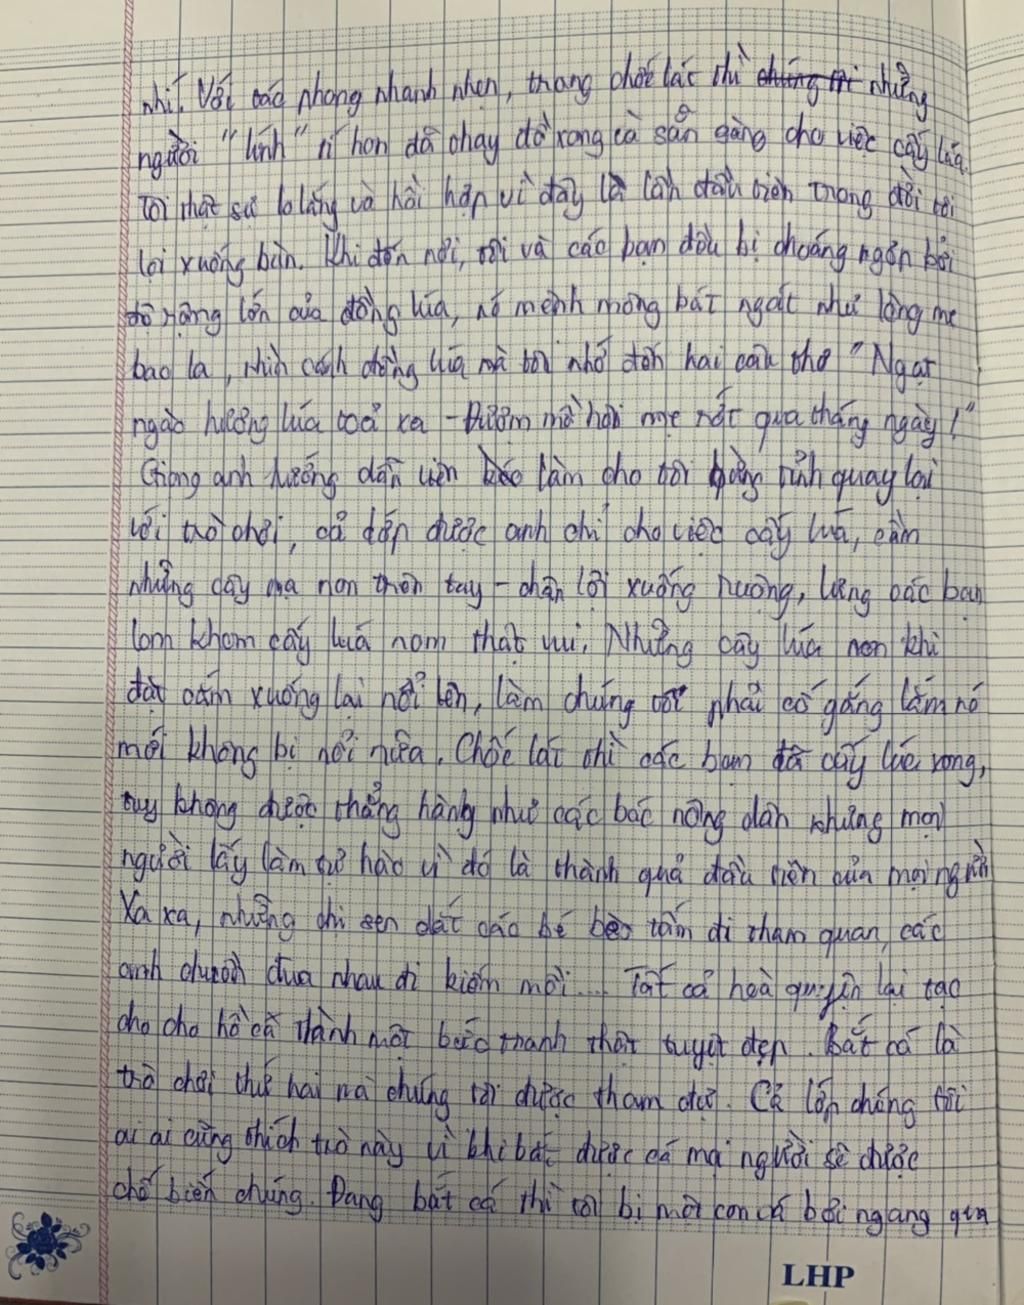 nhí. Với tác phong nhanh nhẹn, trong chốc lát thì những
người "lính" tí hon đã thay đồ xong cả sẵn gàng cho việc cấy lúa.
Tôi thật sự lo lắng và hồi hộp vì đây là lần đầu tiên trong đời tôi
lội xuống bùn. Khi đến nơi, tôi và các bạn đều bị choáng ngợp bởi
độ rộng lớn của đồng lúa, nó mênh mông bát ngát như lòng mẹ
bao la, nhìn cánh đồng lúa mà tôi nhớ đến hai câu thơ "Ngạt
ngào hương lúa toả ra - Đượm mồ hôi mẹ rớt qua tháng ngày!"
Giọng anh hướng dẫn viên làm cho tôi bừng tỉnh quay lại
với trò chơi, được anh chỉ cho việc cấy lúa, cầm
những cây mạ non trên tay - chân lội xuống ruộng, lưng các bạn
lom khom cấy luá nom thật vui. Những cây lúa non khi
đặt cắm xuống lại nổi lên, làm chúng tôi phải cố gắng lắm nó
mới không bị nổi nữa. Chốc lát thì các bạn đã cấy lúa xong,
tuy không được thẳng hàng như các bác nông dân nhưng mọi
người lấy làm tự hào vì đó là thành quả đầu tiên của mọi người
Xa xa, những chị sen dắt các bé bèo tấm đi tham quan, các
anh chuồn đua nhau đi kiếm mồi... Tất cả hoà quyện lại tạo
cho cho hồ cá thành một bức tranh thật tuyệt đẹp. Bắt cá là
trò chơi thứ hai mà chúng tôi được tham dự. Cả lớp chúng tôi
ai ai cũng thích trò này vì khi bắt được cá mọi người sẽ được
chế biến chúng. Đang bắt cá thì tôi bị một con cá bơi ngang qua
LHP